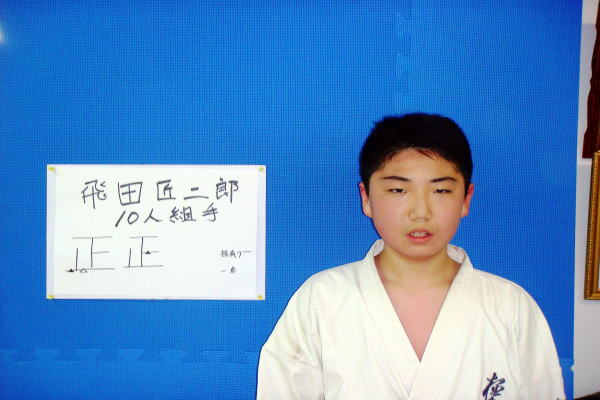 飛田匠二郎
10人組手
正正
一本
極